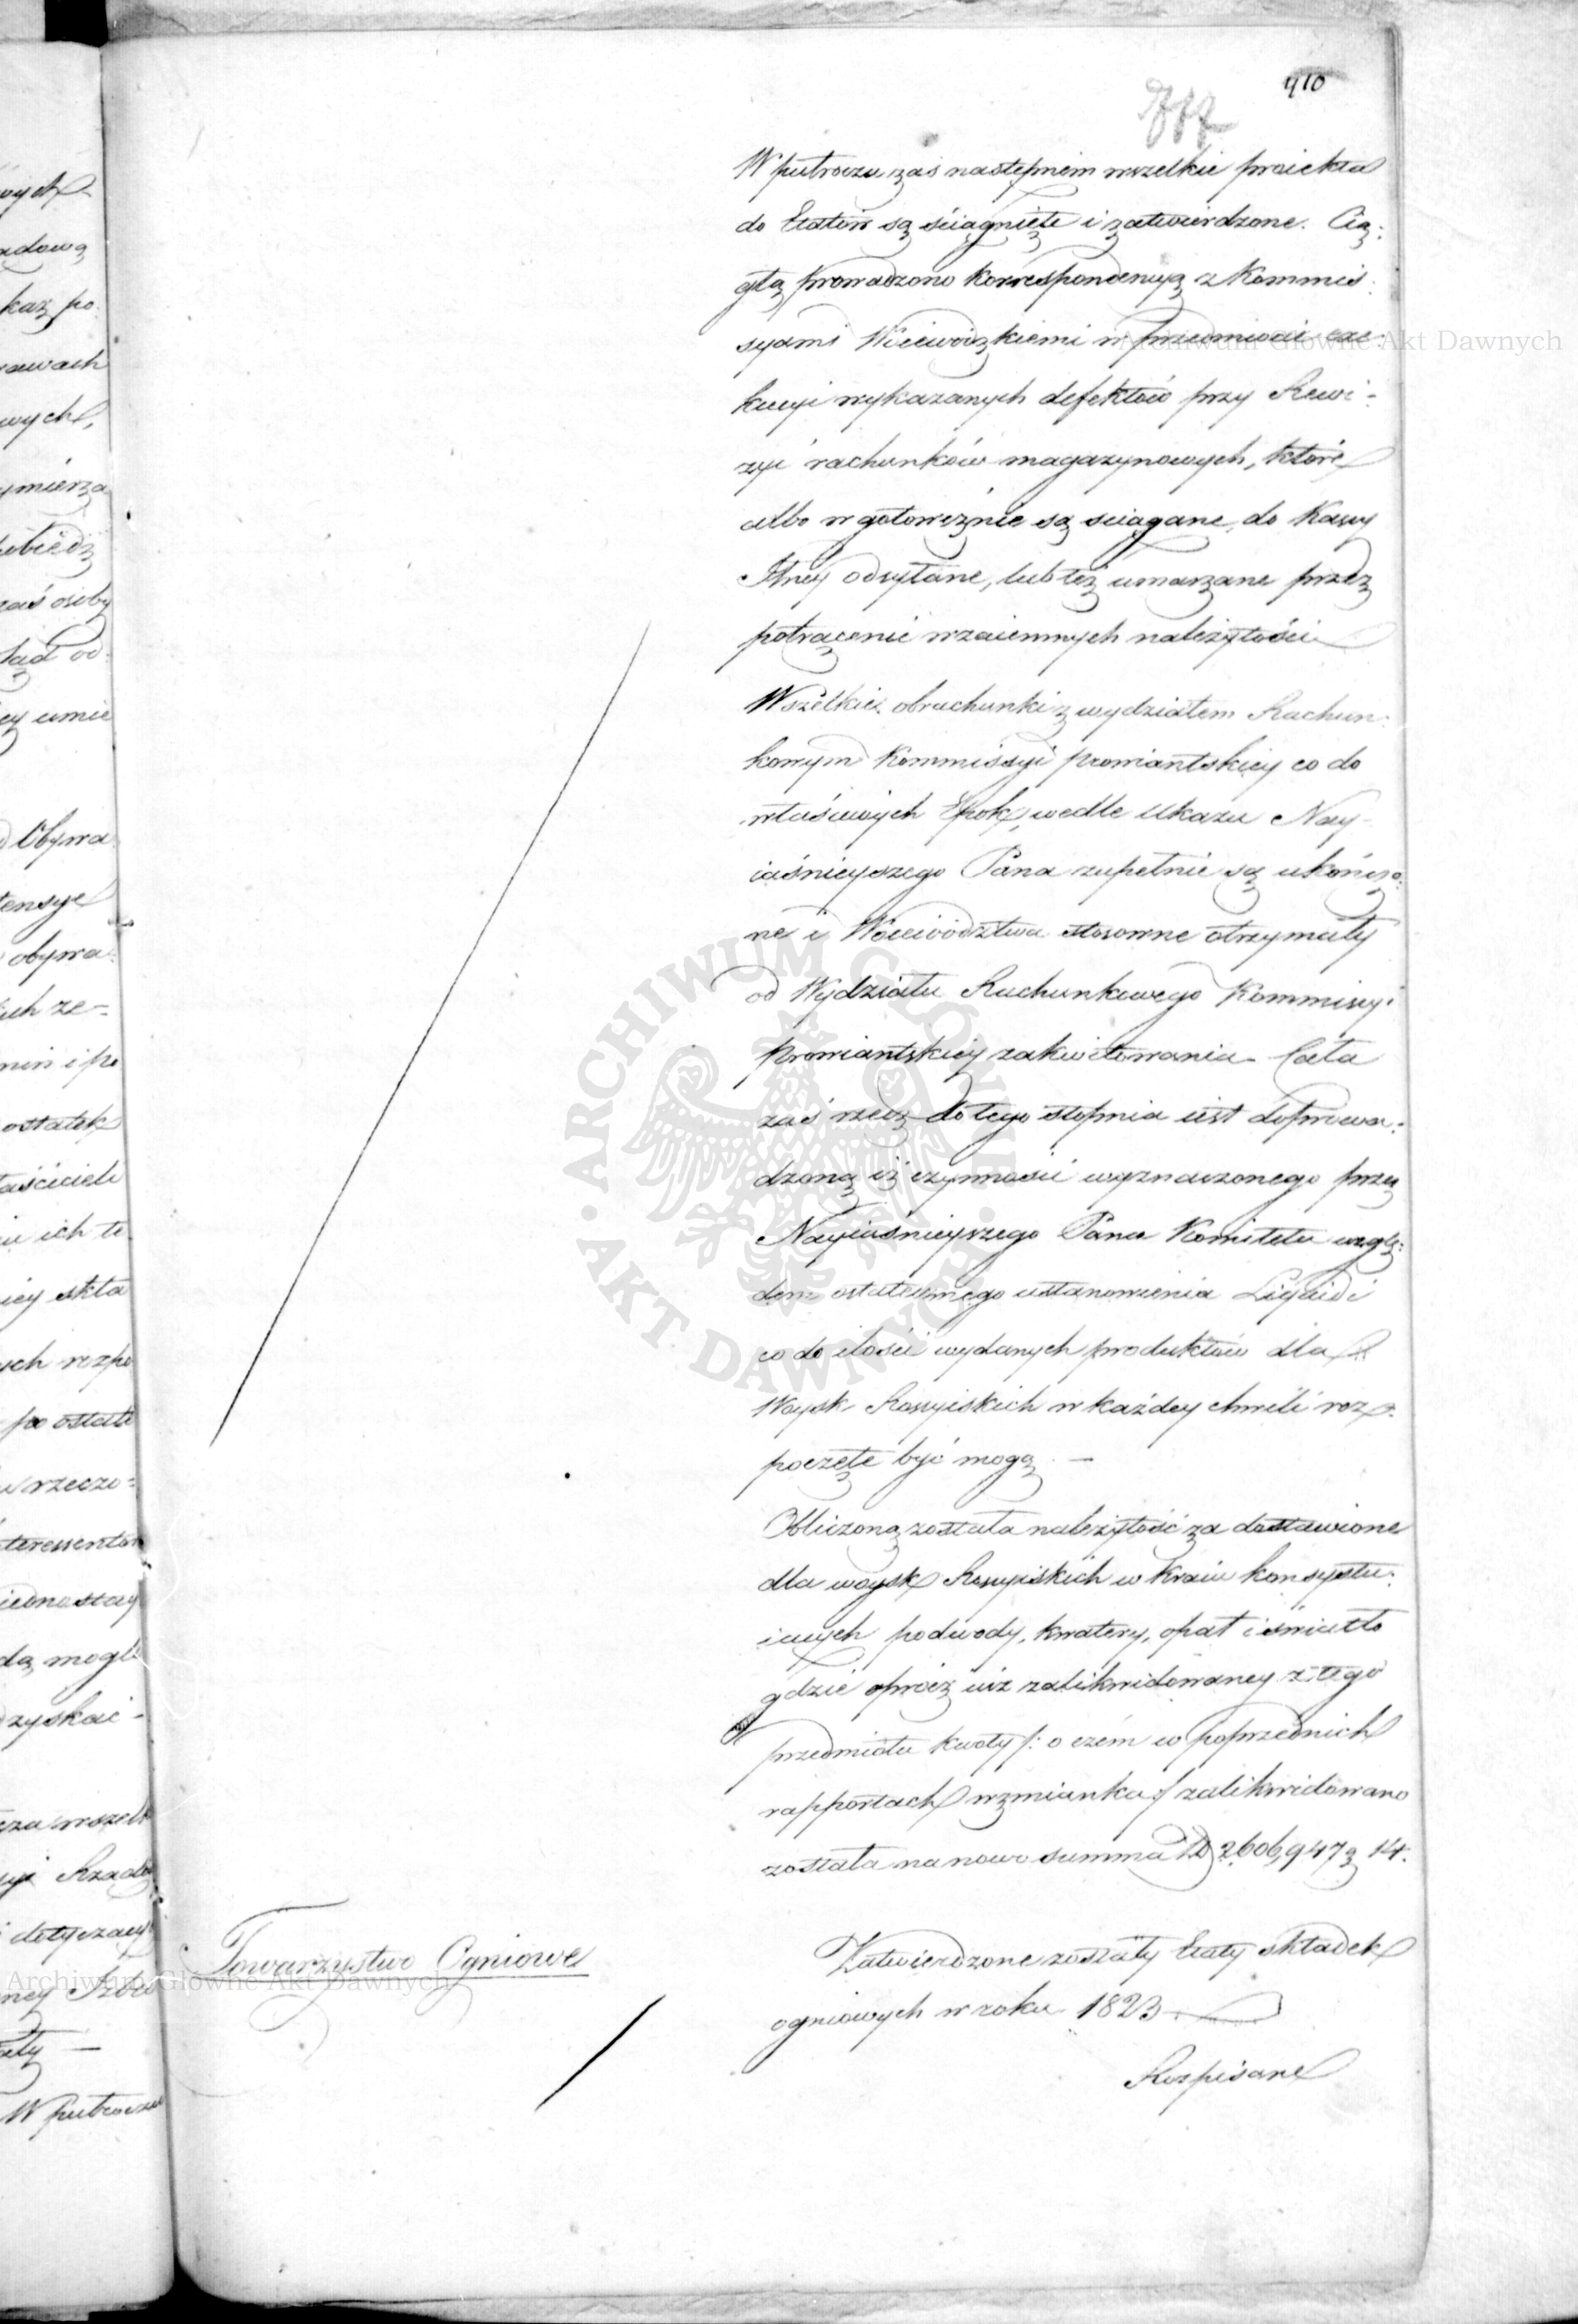 410
W pułroczu zaś następnem wszelkie proiekta
do Etatów są ściągnięte i zatwierdzone. Cią:
głą prowadzono korrespondencyą z Kommis:
syami Woiewódzkiemi w przedmiocie exe:
kucyi wykazanych defektów przy Rewi:
zyi rachunków magazynowych, które
albo w gotowiźnie są ściągane, do Kassy
Głney odsyłane, lub też umarzane przez
potrącenie wzaiemnych należytości
Wszelkie obrachunki z wydziałem Rachun:
kowym Kommissyi prowiantskiey co do
właściwych Epok, wedle Ukazu Nay-
iaśnieyszego Pana zupełnie są ukończo:
ne i Woiewództwa stosowne otrzymały
od Wydziału Rachunkowego Kommissyi
prowiantskiey zakwitowania. Cała
zaś rzecz do tego stopnia iest doprowa:
dzoną iż czynności wyznaczonego przez
Nayiaśnieyszego Pana Komitetu wzglę:
dem ostatecznego ustanowienia Liquidi
co do ilości wydanych produktów dla
Woysk Rossyiskich w każdey chwili roz:
poczęte być mogą. —
Obliczoną została należytość za dostawione
dla woysk Rossyiskich w Kraiu konsystu:
iących podwody, kwatery, opał i światło
gdzie oprócz iuż zalikwidowaney z tego
przedmiotu kwoty /: o czém w poprzednich
rapportach wzmianka :/ zalikwidowano
została na nowo summa 2,606,947 g 14.
Towarzystwo Ogniowe
Zatwierdzone zostały Etaty składek
ogniowych w roku 1823
Rozpisane
Archiwum Główne Akt Dawnych
Archiwum Główne Akt Dawnych
ARCHIWUM GŁÓWNE · AKT DAWNYCH ·